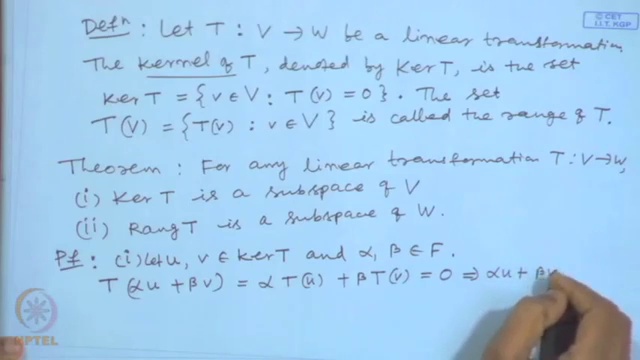 © CET
I.I.T. KGP
Defⁿ : Let T : V → W be a linear transformation.
The kernel of T, denoted by Ker T, is the set
Ker T = {v ∈ V : T(v) = 0}. The set
T(V) = {T(v) : v ∈ V} is called the range of T.
Theorem : For any linear transformation T : V → W,
(i) Ker T is a subspace of V
(ii) Rang T is a subspace of W.
Pf : (i) Let u, v ∈ Ker T and α, β ∈ F.
T(αu + βv) = αT(u) + βT(v) = 0 ⇒ αu + βv
NPTEL